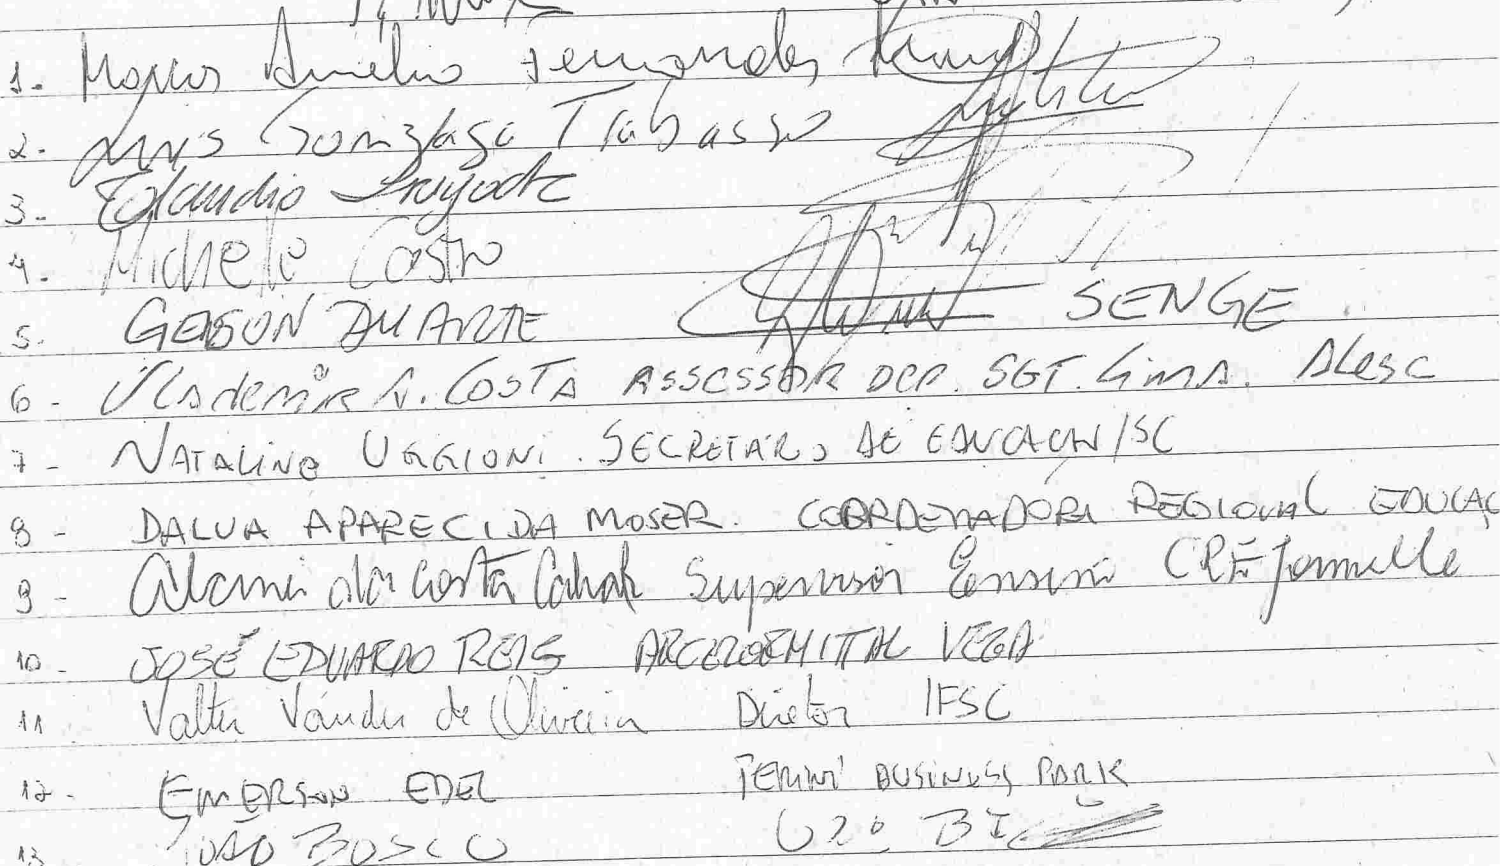 1. Marco Aurélio Fernandes
2. Luis Gonzaga Trabasso
3-
4. Michele Castro
5. GERSON DUARTE SENGE
6- Vlademir A. COSTA ASSESSOR DEP. SGT. Lima. ALESC
7- NATALINO UGGIONI. SECRETARIO DE EDUCACAO/SC
8- DALVA APARECIDA MOSER. COORDENADORA REGIONAL EDUCAÇ
9- da Costa Supervisor Ensino CRE Joinville
10- JOSÉ EDUARDO REIS ARCELORMITTAL VEGA
11 Valter Vander de Oliveira Diretor IFSC
12- EMERSON EDEL PERINI BUSINESS PARK
13 JOÃO BOSCO 62º BI